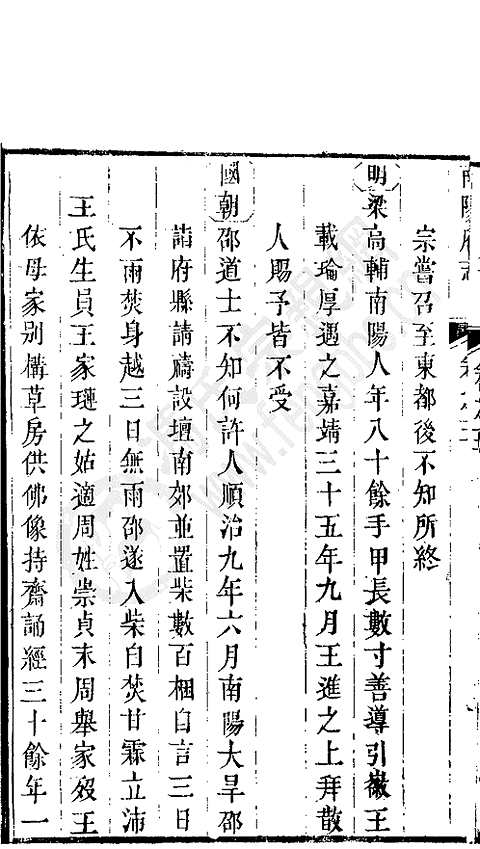 南陽府志
宗嘗召至東都後不知所終
明梁高輔南陽人年八十餘手甲長數寸善導引徽王
載埨厚遇之嘉靖三十五年九月王進之上拜散
人賜予皆不受
國朝邵道士不知何許人順治九年六月南陽大旱邵
詣府縣請禱設壇南郊並置柴數百梱自言三日
不雨焚身越三日無雨邵遂入柴自焚甘霖立沛
王氏生員王家璉之姑適周姓崇貞末周舉家歿王
依母家别構草房供佛像持齋誦經三十餘年一